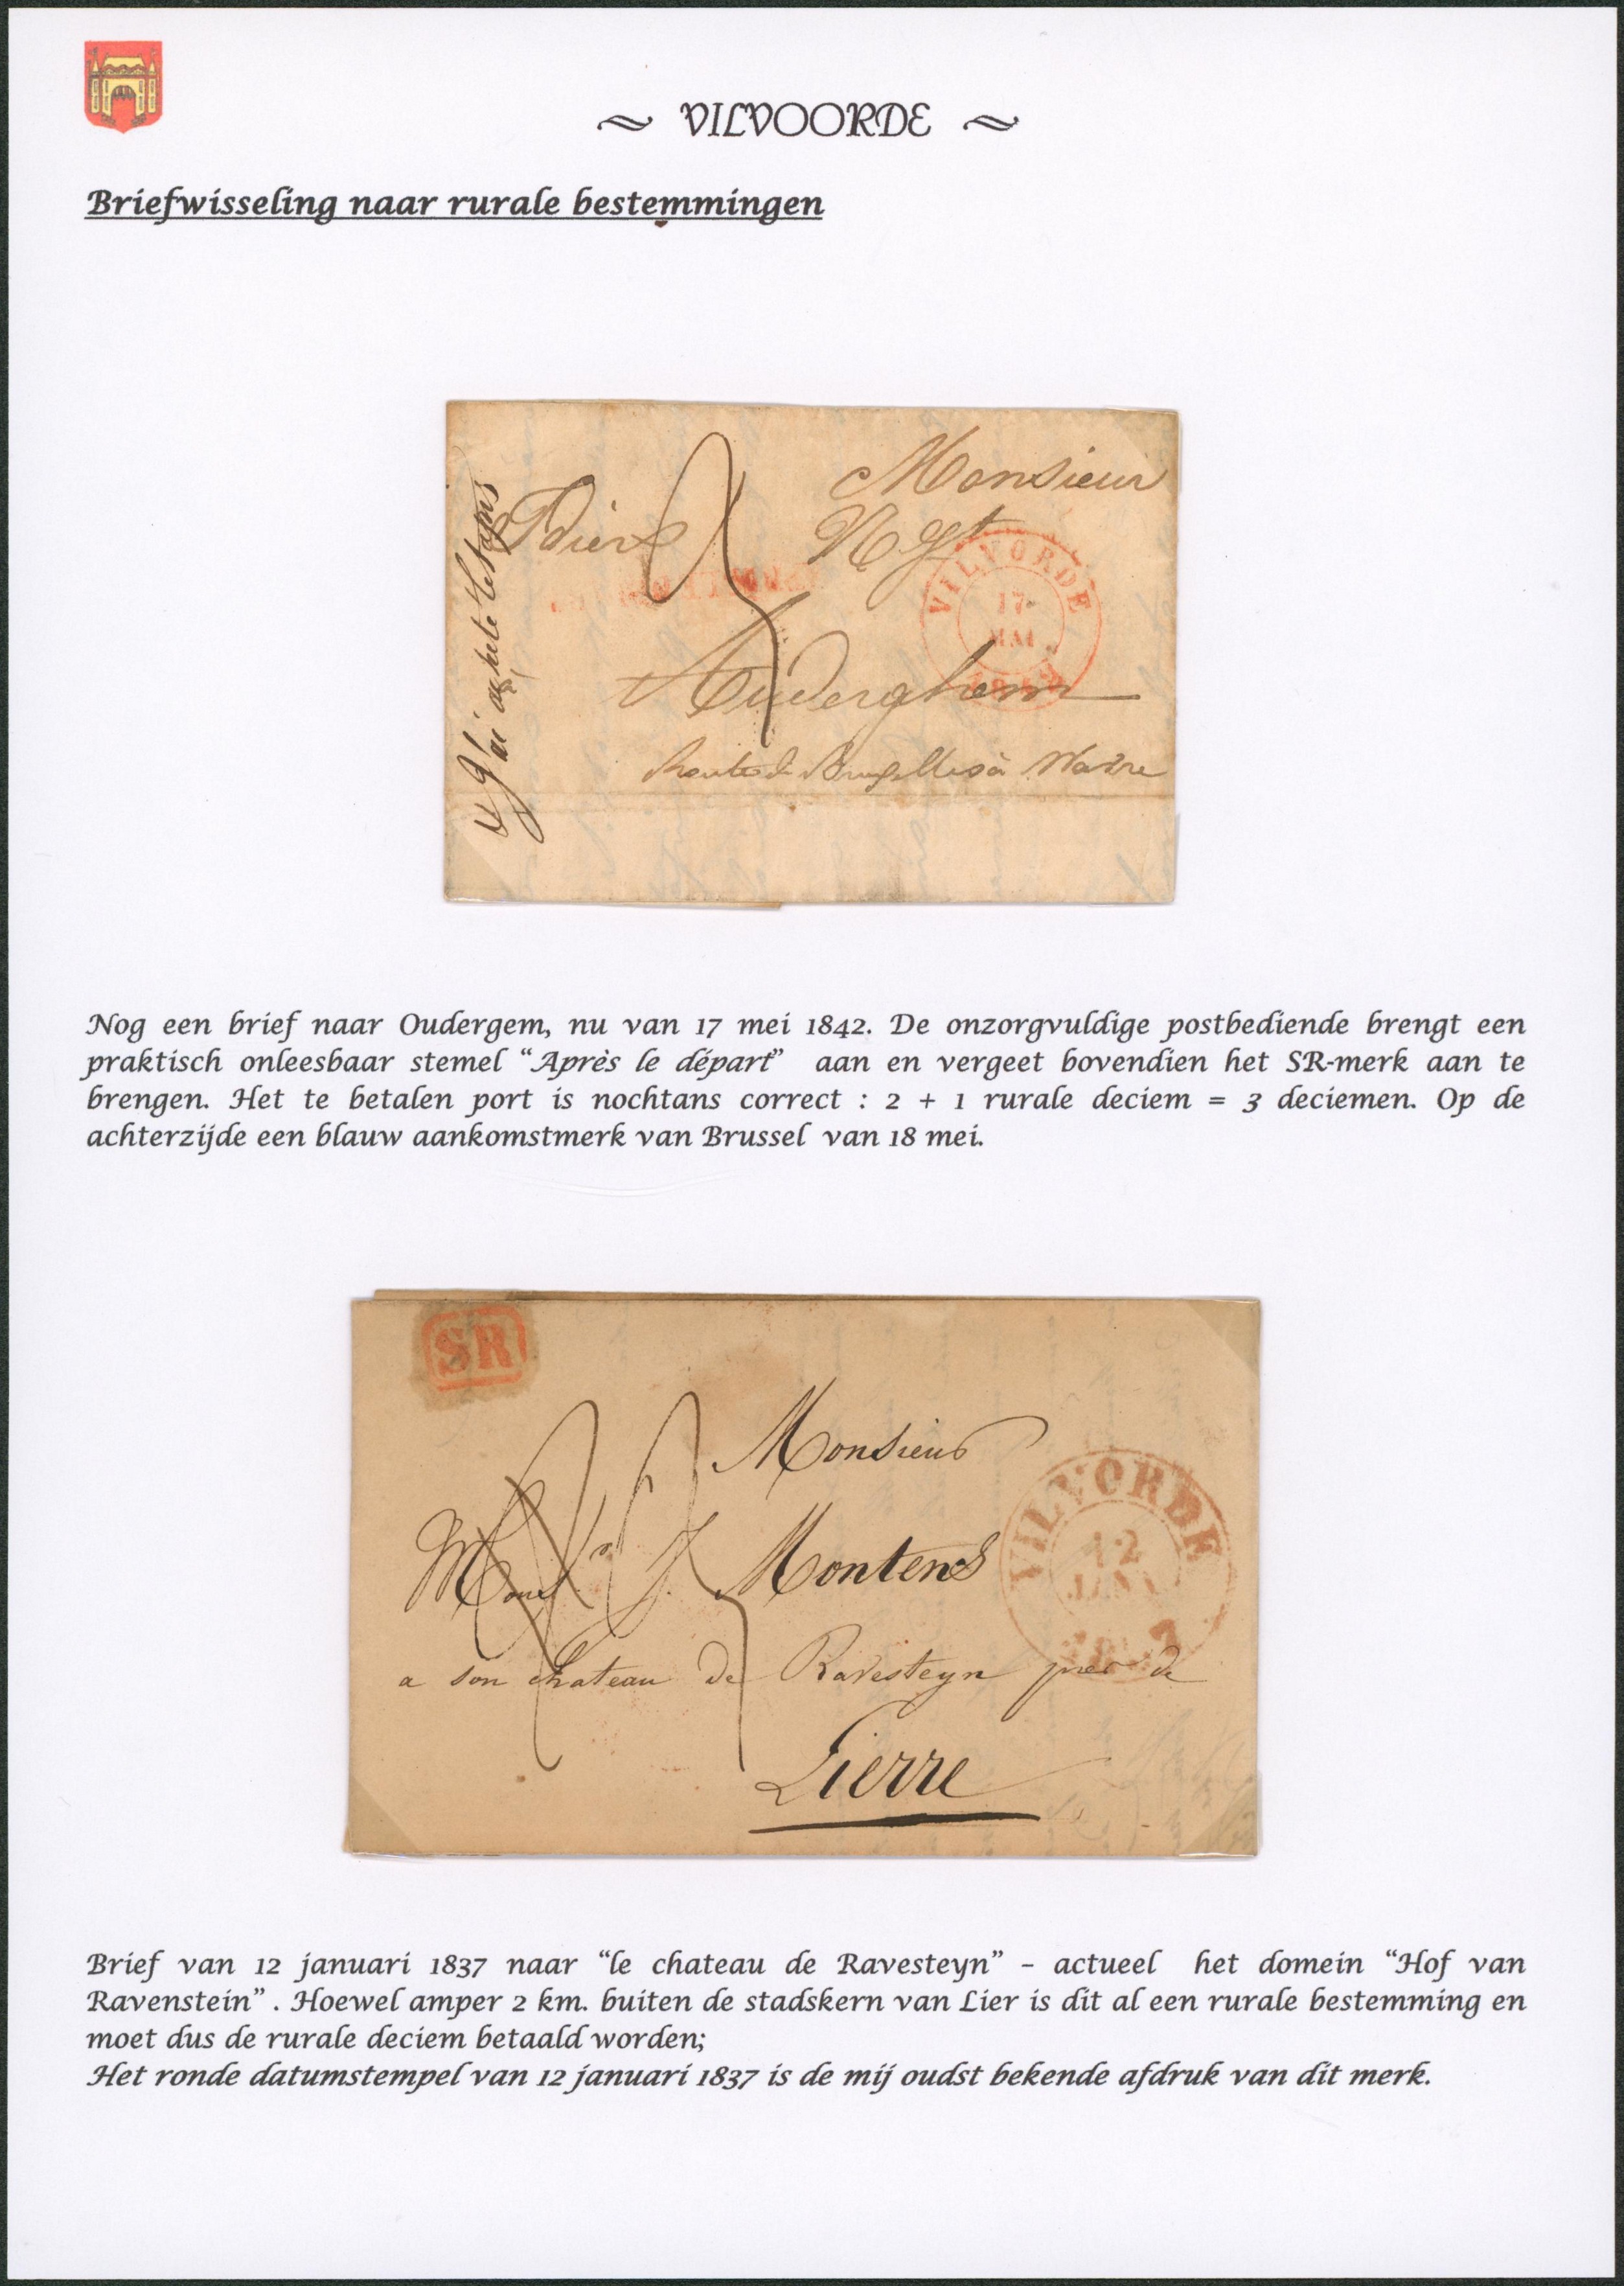 VILVOORDE
Briefwisseling naar rurale bestemmingen
Monsieur
VILVORDE
17
MAI
Auderghem
Route de Bruxelles à Wavre
Nog een brief naar Oudergem, nu van 17 mei 1842. De onzorgvuldige postbediende brengt een
praktisch onleesbaar stemel “Après le départ” aan en vergeet bovendien het SR-merk aan te
brengen. Het te betalen port is nochtans correct : 2 + 1 rurale deciem = 3 deciemen. Op de
achterzijde een blauw aankomstmerk van Brussel van 18 mei.
SR
Monsieur
J. Montens
VILVORDE
12
JANV
a son chateau de Ravesteyn pres de
Lierre
Brief van 12 januari 1837 naar “le chateau de Ravesteyn” – actueel het domein “Hof van
Ravenstein” . Hoewel amper 2 km. buiten de stadskern van Lier is dit al een rurale bestemming en
moet dus de rurale deciem betaald worden;
Het ronde datumstempel van 12 januari 1837 is de mij oudst bekende afdruk van dit merk.